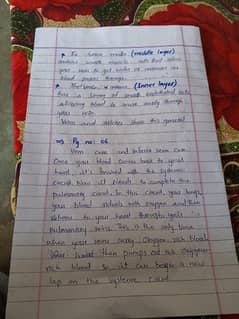 * Tu nica media (middle layer)
smooth muscle
your to get wider or narrower as
blood passes through.
* (Inner layer)
has a lining of smooth endothelial cells
allowing blood to move easily through
your
Veins and arteries share this general
=> Pg no: 06
Vena cava and
Once your blood comes back to your
heart, it's finished with the systemic
circuit. Now it needs to complete the
pulmonary circuit. In this circuit, your lungs
your blood with oxygen and then
returns to your heart through your
pulmonary veins. This is the only time
when your veins carry oxygen-rich blood.
Your heart then pumps out this oxygen
rich blood so it can begin a new
lap on the systemic circuit